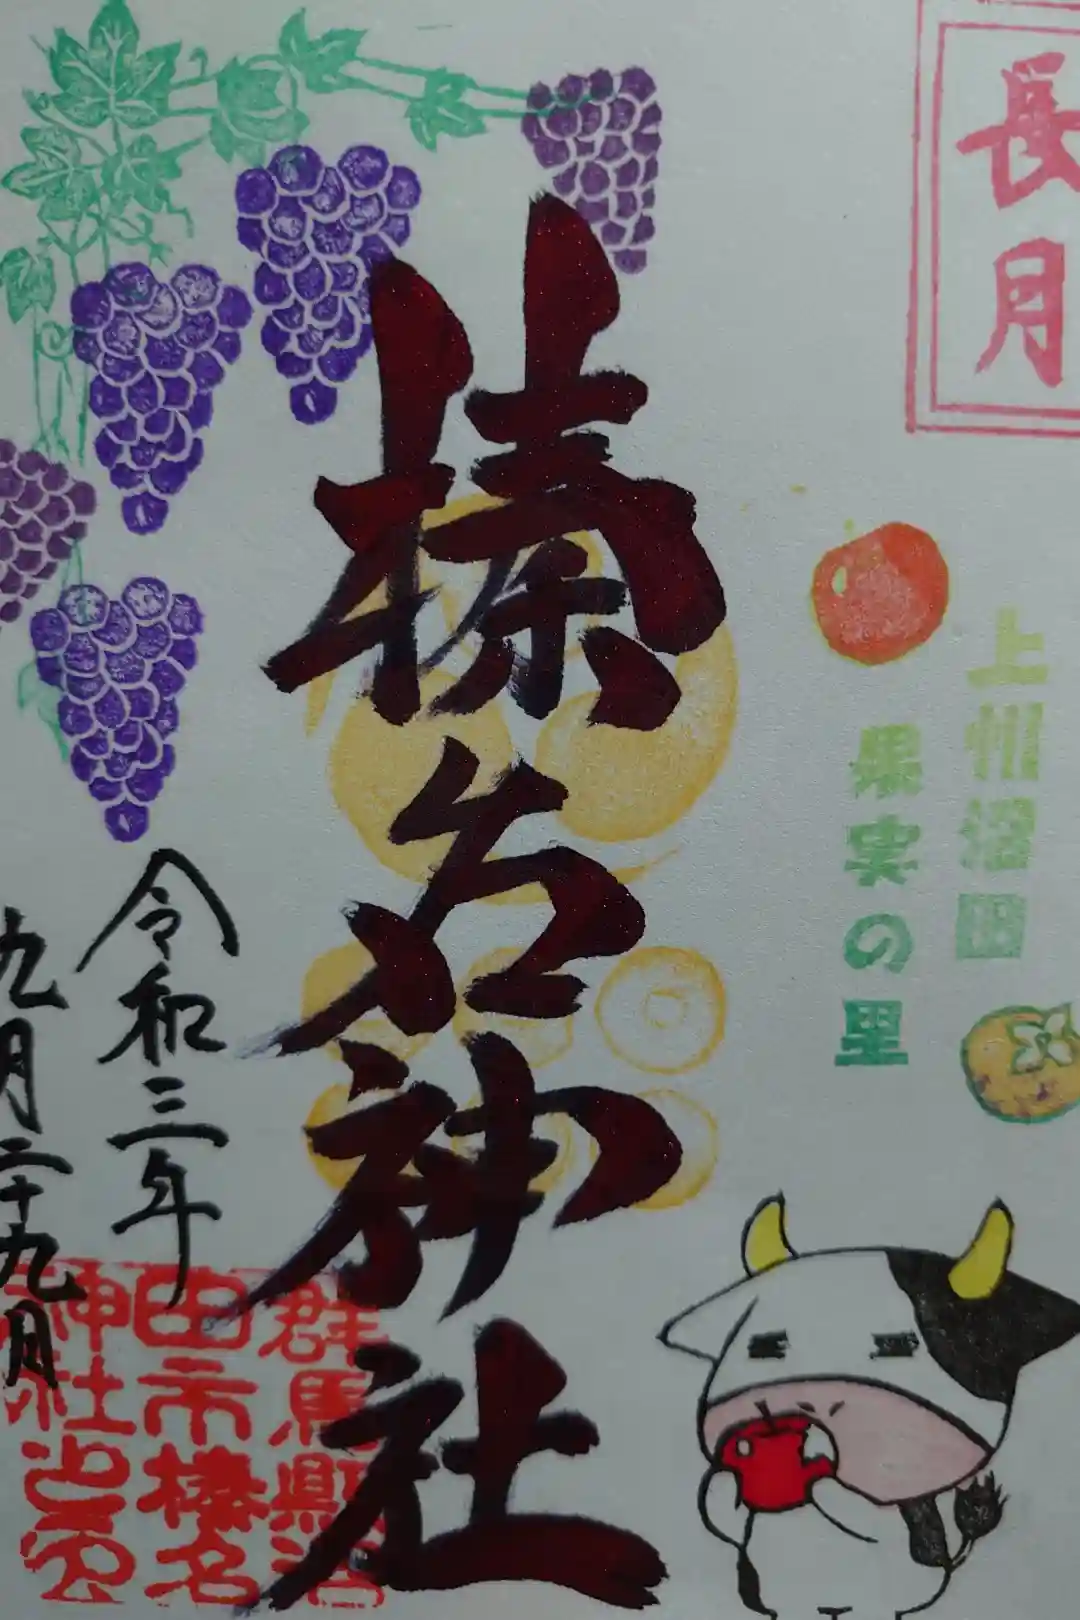 長月
上州沼田
果実の里
榛名神社
令和三年
九月二十九日
群馬縣沼
田市榛名
神社之印